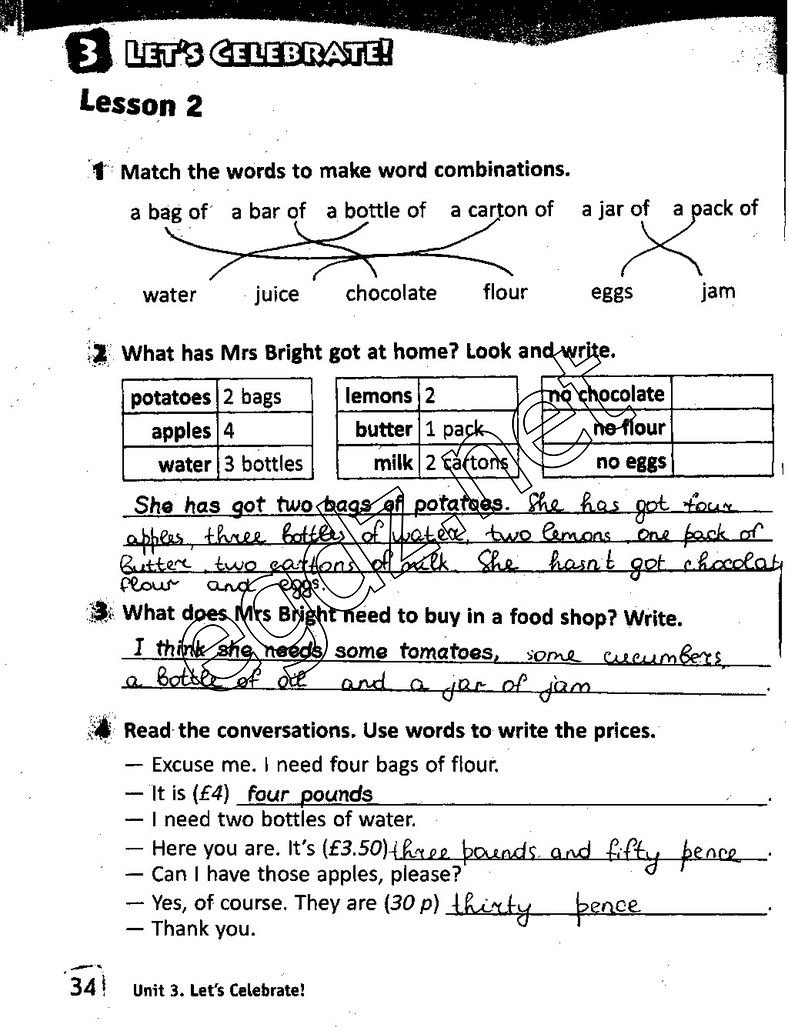 3 LET'S CELEBRATE!
Lesson 2
1 Match the words to make word combinations.
a bag of a bar of a bottle of a carton of a jar of a pack of
water juice chocolate flour eggs jam
2 What has Mrs Bright got at home? Look and write.
potatoes 2 bags lemons 2 no chocolate
apples 4 butter 1 pack no flour
water 3 bottles milk 2 cartons no eggs
She has got two bags of potatoes. She has got four
apples, three bottles of water, two lemons, one pack of
butter, two cartons of milk. She hasn't got chocolat
flour and eggs.
3 What does Mrs Bright need to buy in a food shop? Write.
I think she needs some tomatoes, some cucumbers,
a bottle of oil and a jar of jam.
4 Read the conversations. Use words to write the prices.
— Excuse me. I need four bags of flour.
— It is (£4) four pounds.
— I need two bottles of water.
— Here you are. It's (£3.50) three pounds and fifty pence.
— Can I have those apples, please?
— Yes, of course. They are (30 p) thirty pence.
— Thank you.
34 Unit 3. Let's Celebrate!
egdz.net